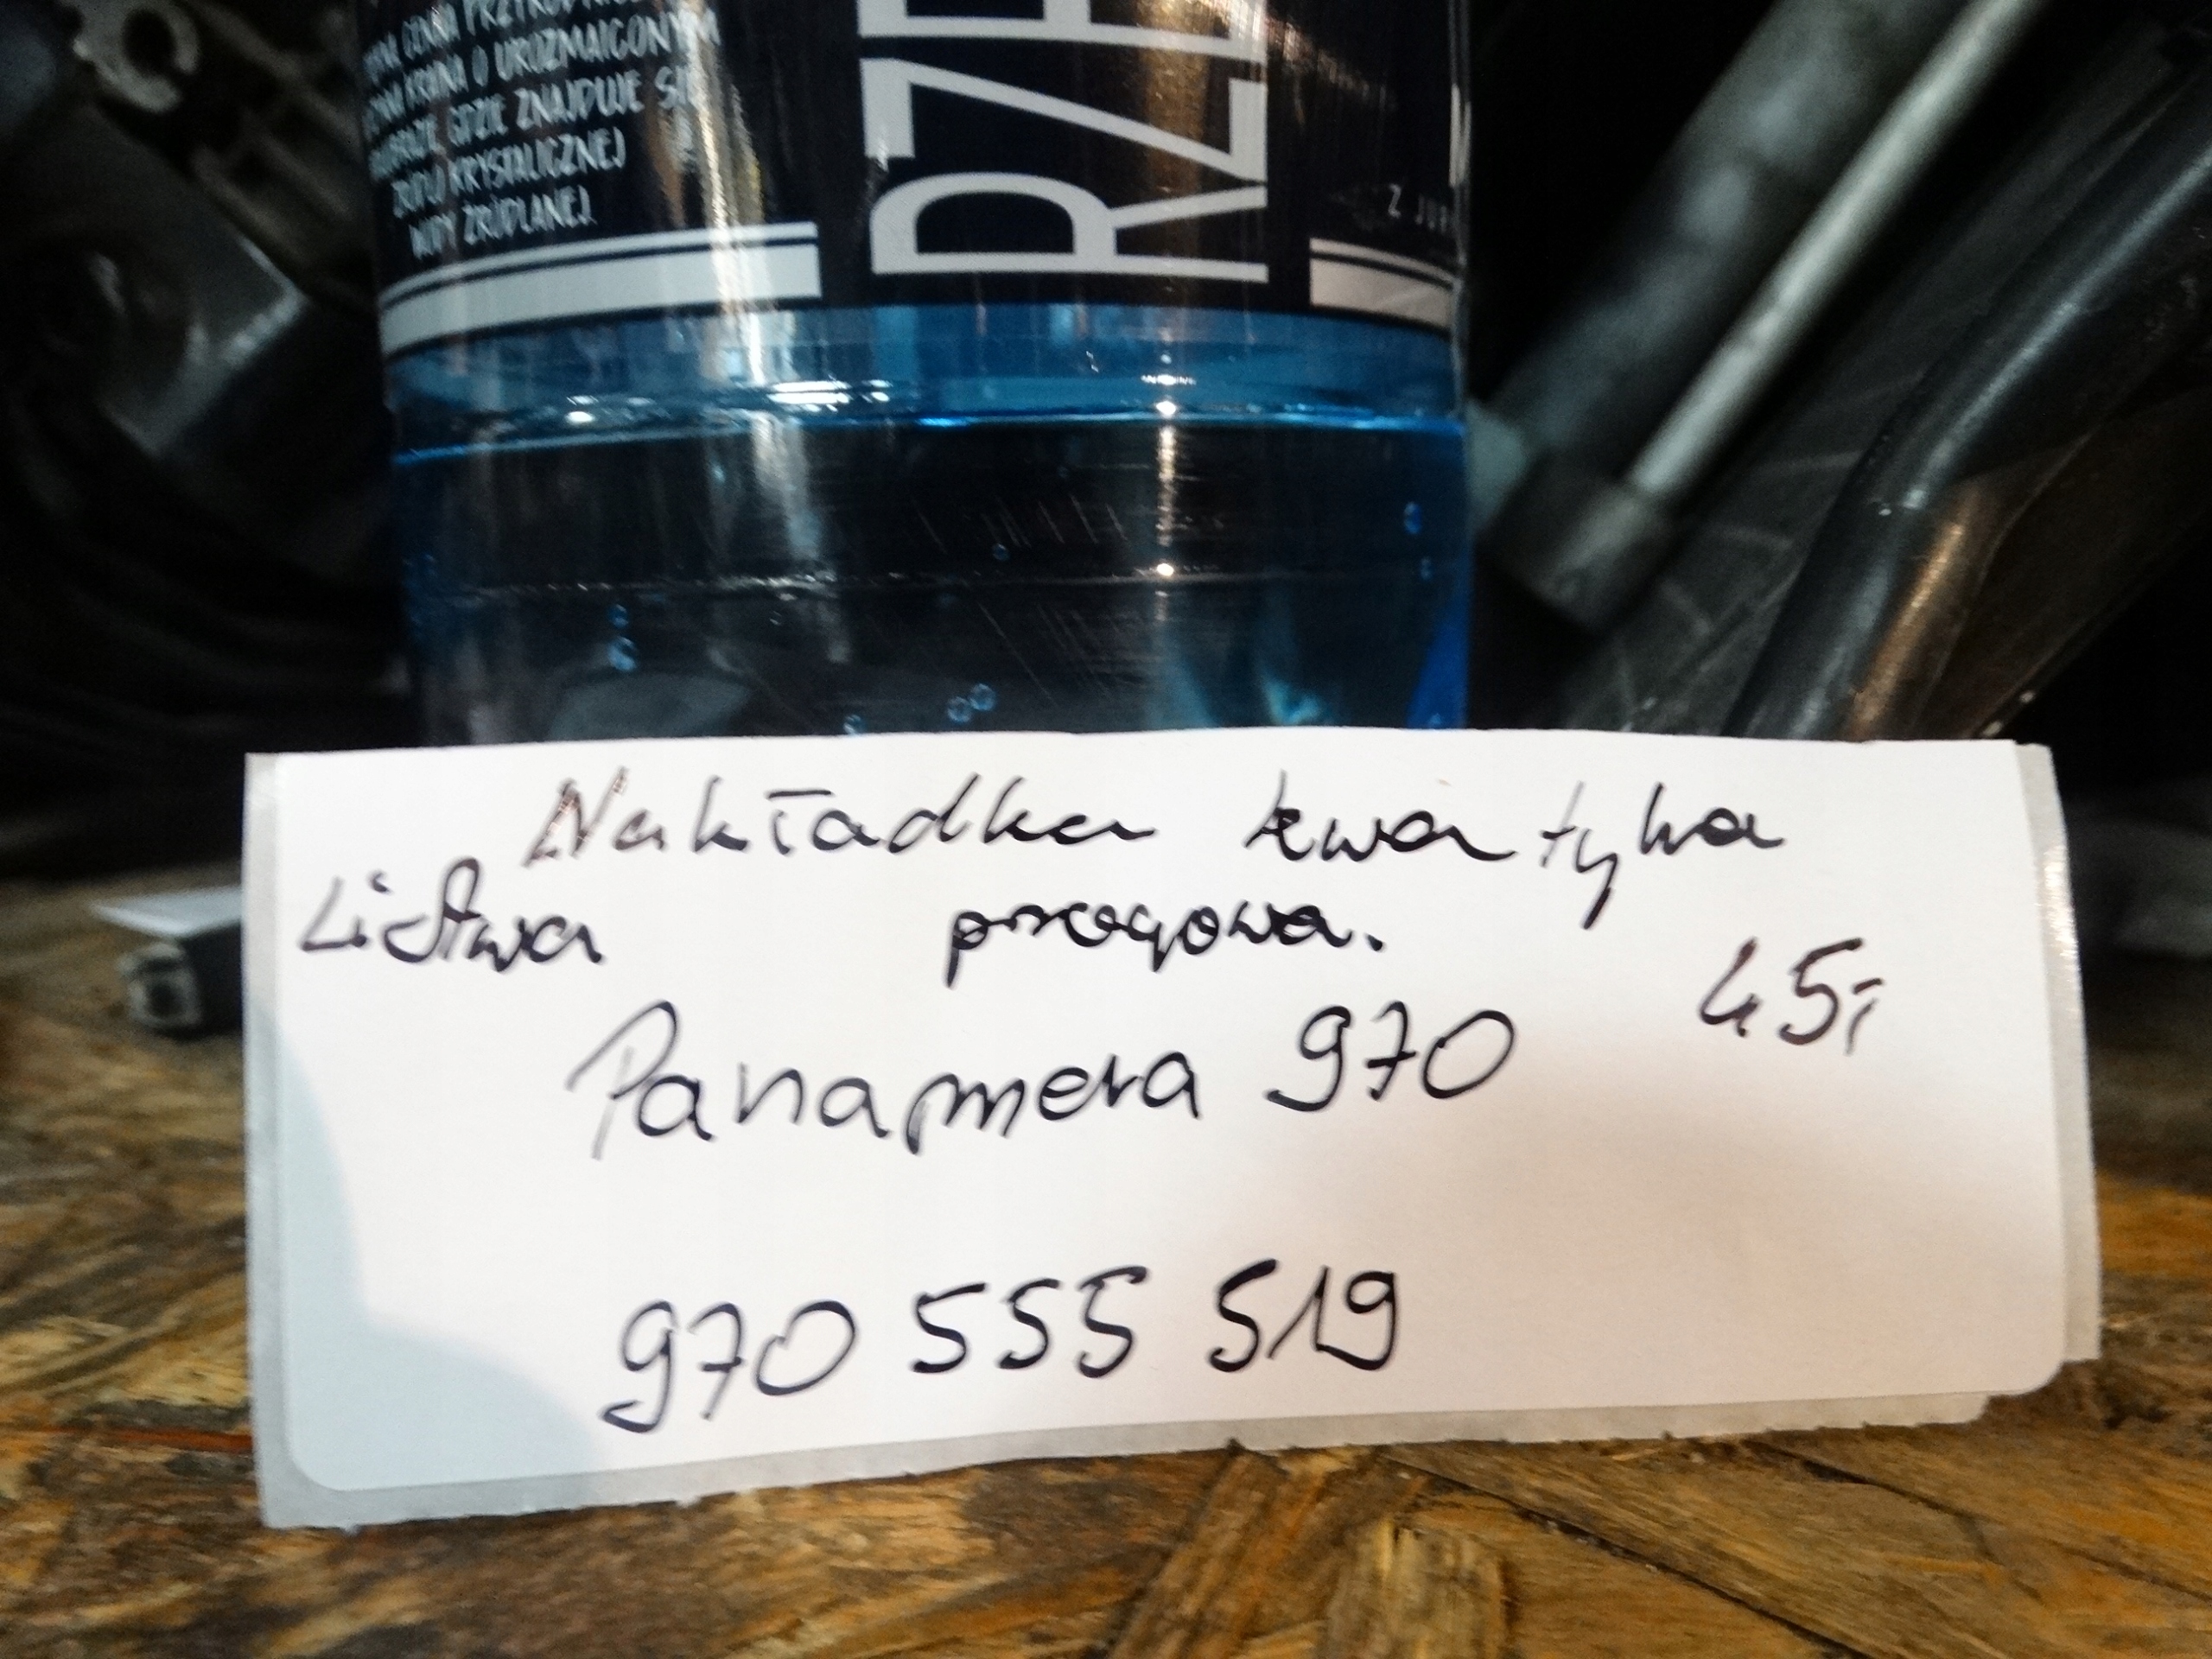 CENNA
KRAINA O UROZMAICONYM
GDZIE ZNAJDUJE SIĘ
KRYSTALICZNEJ
WODY ŹRÓDLANEJ.
RZE
Z JUR
Nakładka kwartyka
Listwa progowa.
45,-
Panamera 970
970 555 519